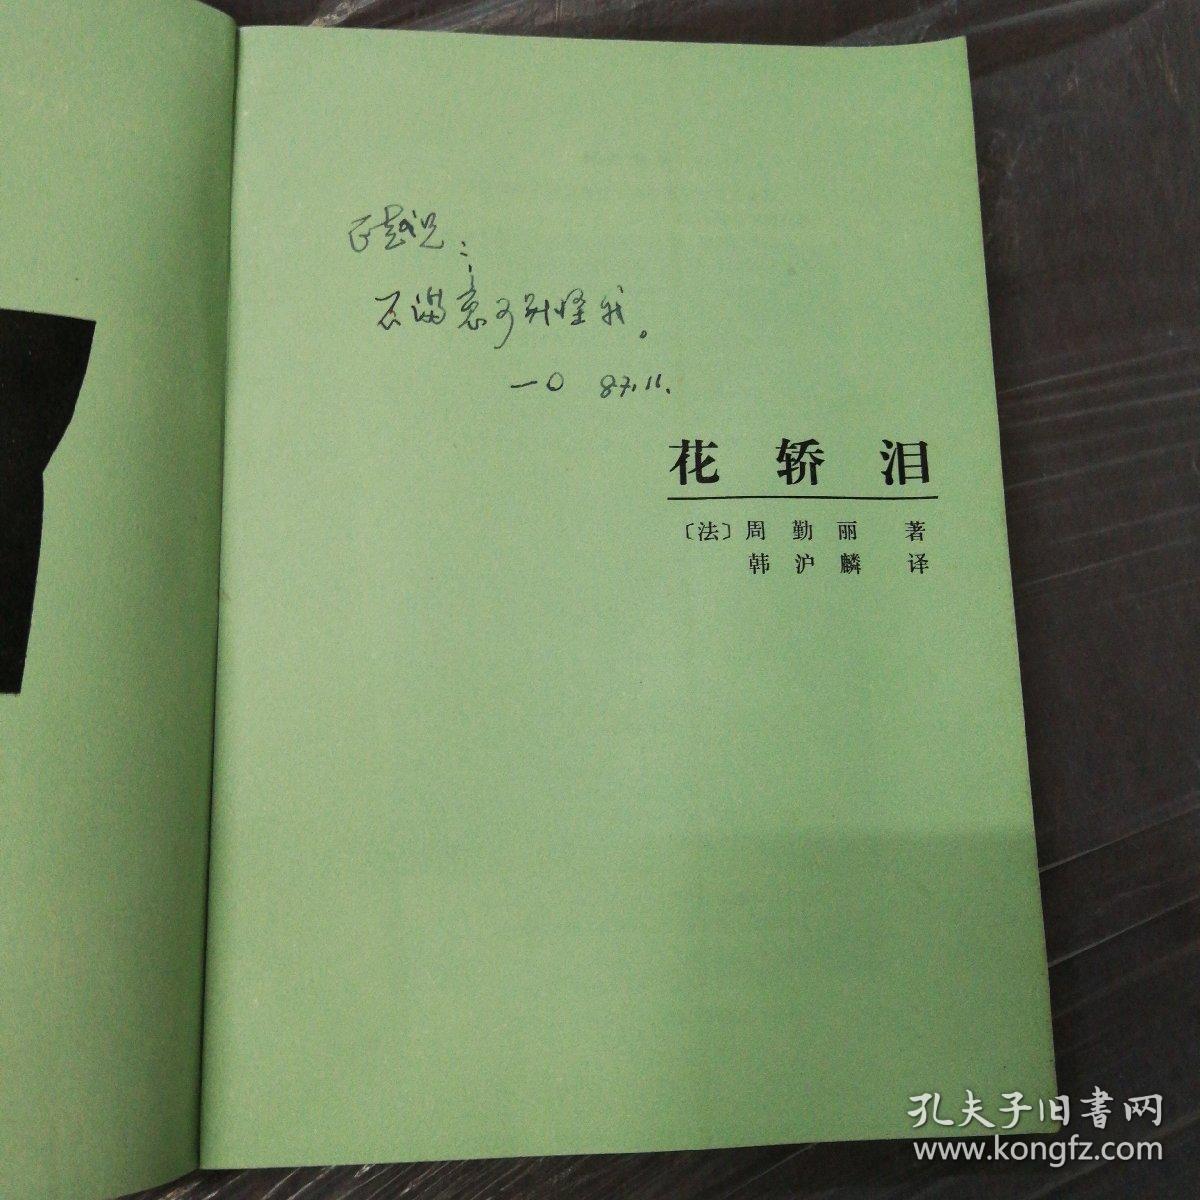 正越兄：
不满意可别怪我。
一〇 87.11.
花轿泪
〔法〕周勤丽 著
韩沪麟 译
孔夫子旧书网
www.kongfz.com